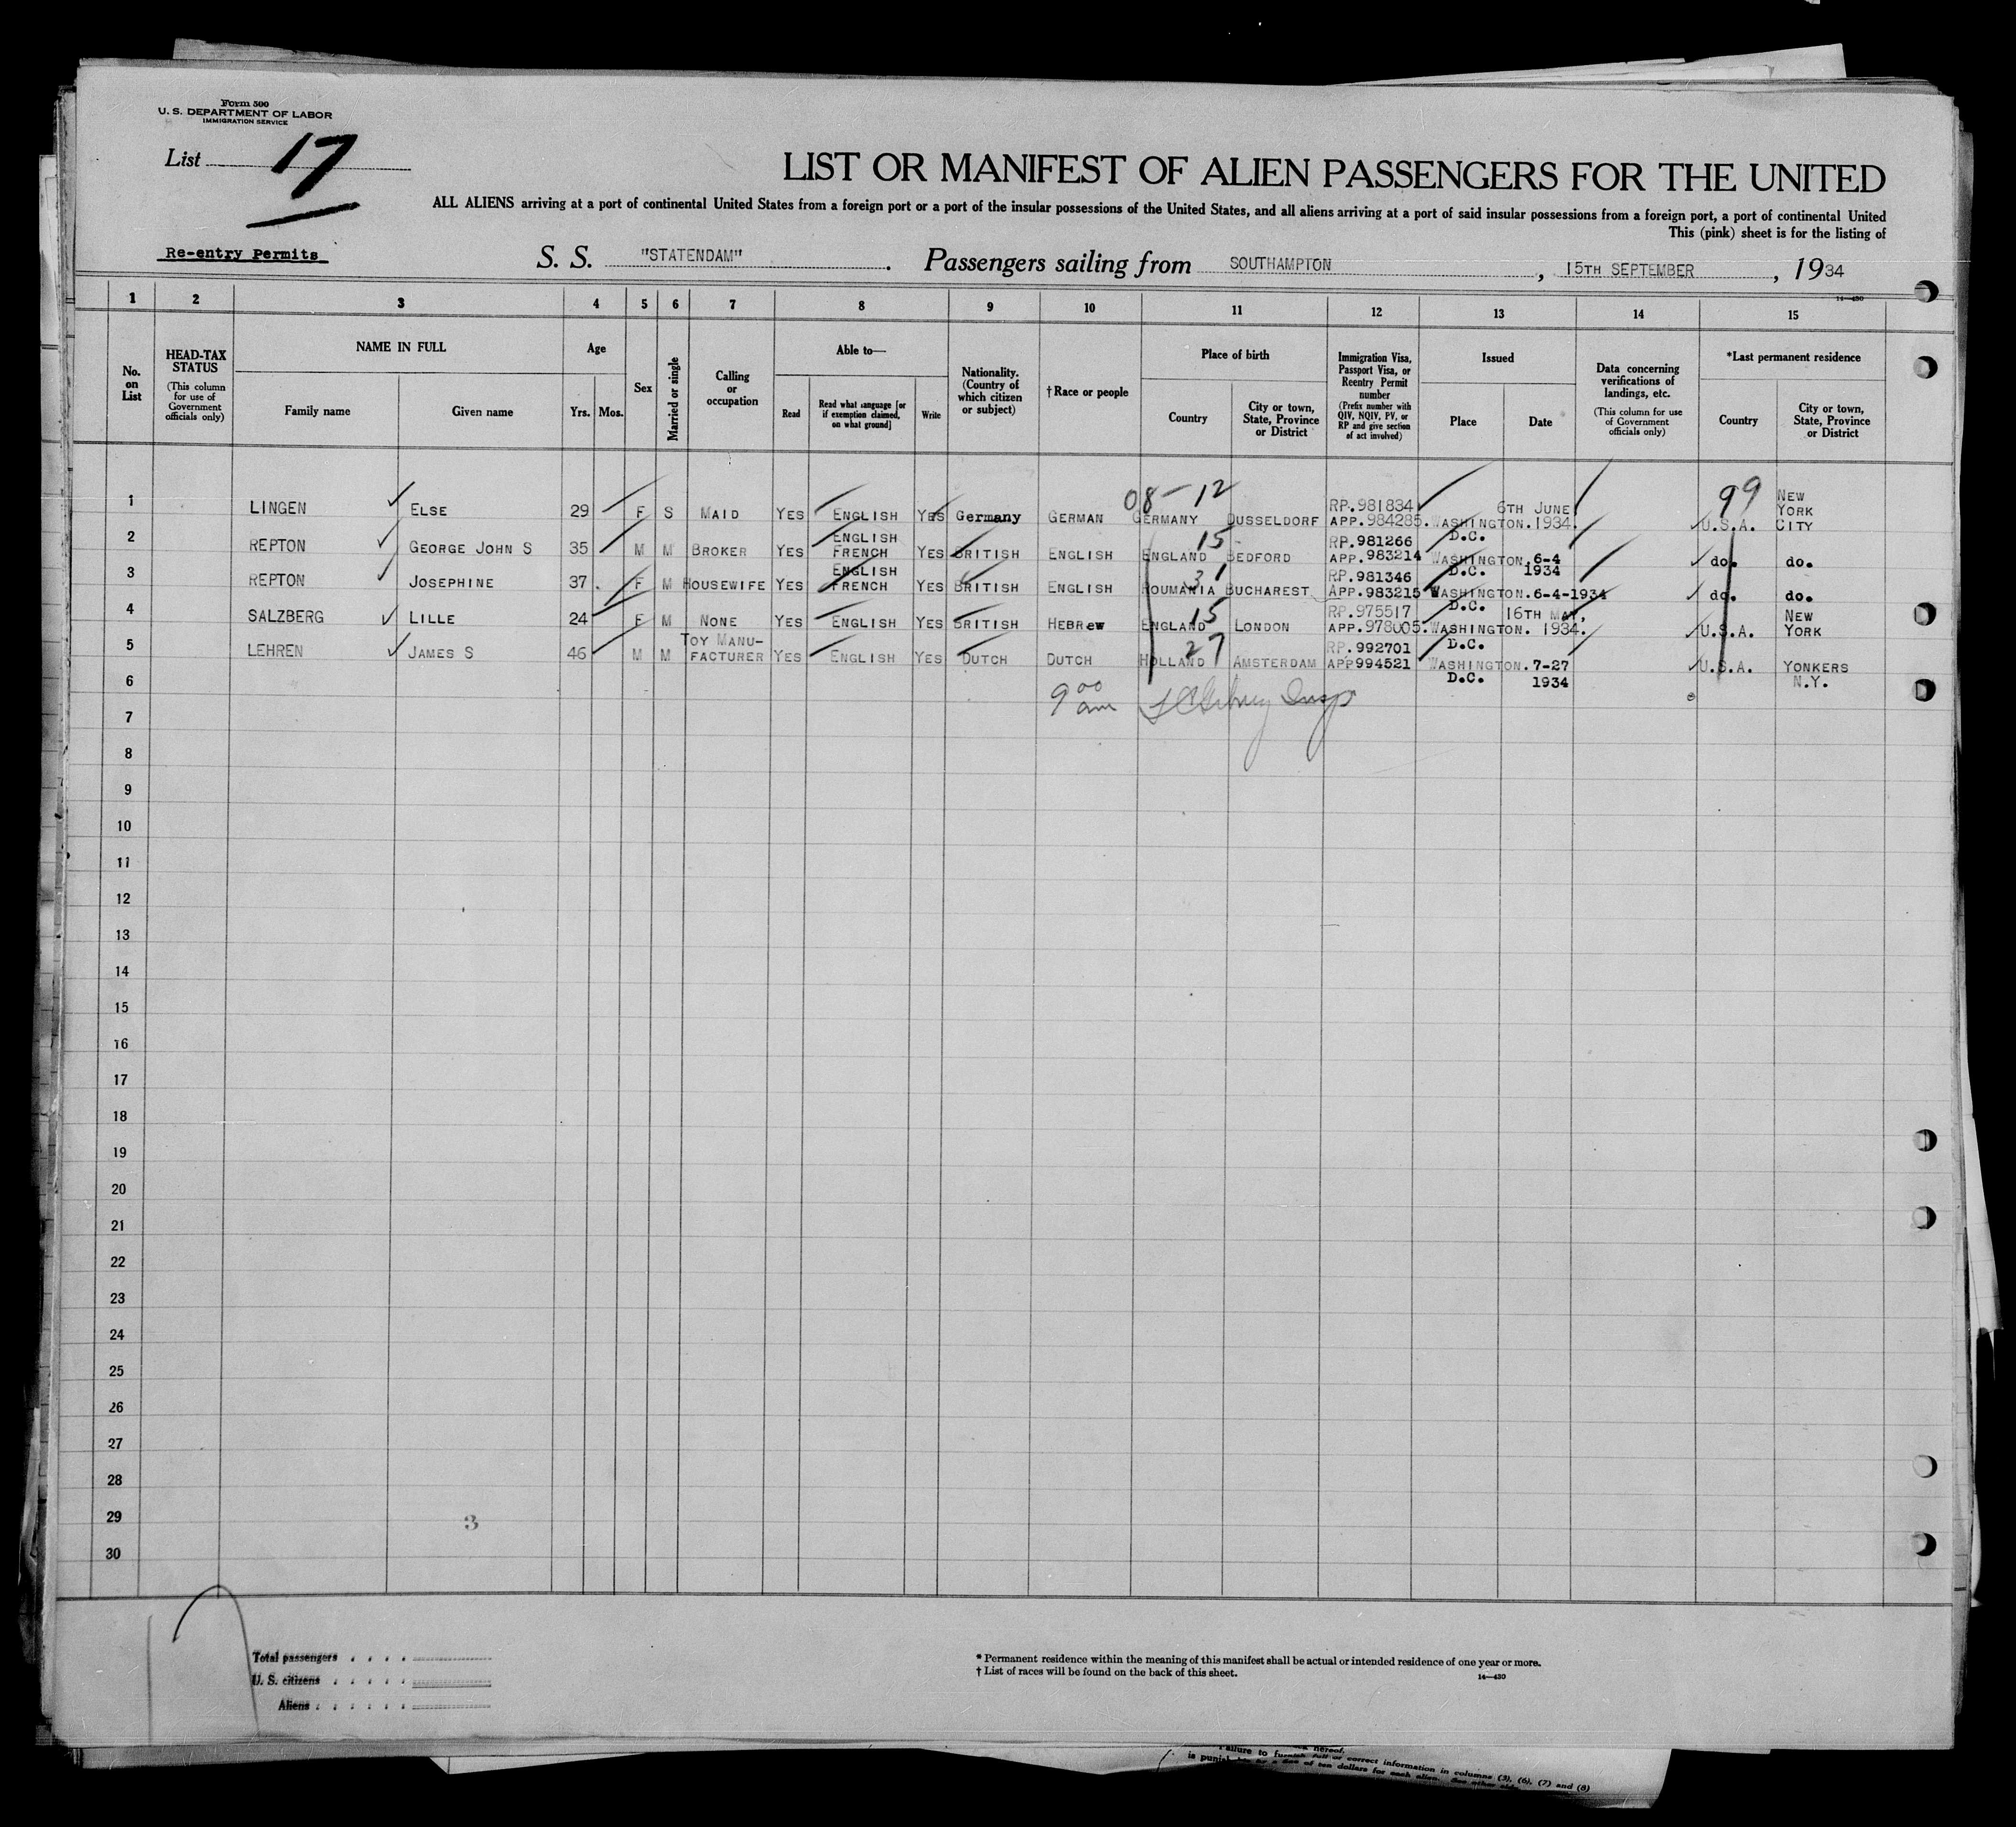 Form 500
U. S. DEPARTMENT OF LABOR
IMMIGRATION SERVICE
List 17
LIST OR MANIFEST OF ALIEN PASSENGERS FOR THE UNITED
ALL ALIENS arriving at a port of continental United States from a foreign port or a port of the insular possessions of the United States, and all aliens arriving at a port of said insular possessions from a foreign port, a port of continental United
This (pink) sheet is for the listing of
Re-entry Permits
S. S. "STATENDAM". Passengers sailing from SOUTHAMPTON, 15TH SEPTEMBER, 1934
14—430
1 2 3 4 5 6 7 8 9 10 11 12 13 14 15
No. on List
HEAD-TAX STATUS (This column for use of Government officials only)
NAME IN FULL
Family name Given name
Age
Yrs. Mos.
Sex
Married or single
Calling or occupation
Able to—
Read Read what language [or if exemption claimed, on what ground] Write
Nationality. (Country of which citizen or subject)
†Race or people
Place of birth
Country City or town, State, Province or District
Immigration Visa, Passport Visa, or Reentry Permit number (Prefix number with QIV, NQIV, PV, or RP and give section of act involved)
Issued
Place Date
Data concerning verifications of landings, etc. (This column for use of Government officials only)
*Last permanent residence
Country City or town, State, Province or District
08-12 99
1 LINGEN ELSE 29 F S MAID YES ENGLISH YES Germany GERMAN GERMANY DUSSELDORF RP.981834 APP.984285. WASHINGTON. D.C. 6TH JUNE 1934. U.S.A. NEW YORK CITY
15
2 REPTON GEORGE JOHN S 35 M M BROKER YES ENGLISH FRENCH YES BRITISH ENGLISH ENGLAND BEDFORD RP.981266 APP.983214 WASHINGTON. D.C. 6-4 1934 do. do.
31
3 REPTON JOSEPHINE 37. F M HOUSEWIFE YES ENGLISH FRENCH YES BRITISH ENGLISH ROUMANIA BUCHAREST RP.981346 APP.983215 WASHINGTON. D.C. 6-4-1934 do. do.
15
4 SALZBERG LILLE 24 F M NONE YES ENGLISH YES BRITISH HEBREW ENGLAND LONDON RP.975517 APP.978005. WASHINGTON. D.C. 16TH MAY, 1934. U.S.A. NEW YORK
27
5 LEHREN JAMES S 46 M M TOY MANU-FACTURER YES ENGLISH YES DUTCH DUTCH HOLLAND AMSTERDAM RP.992701 APP994521 WASHINGTON. D.C. 7-27 1934 U.S.A. YONKERS N.Y.
6
9 00 am
7
8
9
10
11
12
13
14
15
16
17
18
19
20
21
22
23
24
25
26
27
28
29
3
30
Total passengers
U. S. citizens
Aliens
* Permanent residence within the meaning of this manifest shall be actual or intended residence of one year or more.
† List of races will be found on the back of this sheet.
14—430
hereof.
Failure to furnish full or correct information in columns (3), (6), (7) and (8)
is punishable by a fine of ten dollars for each alien. See other side.